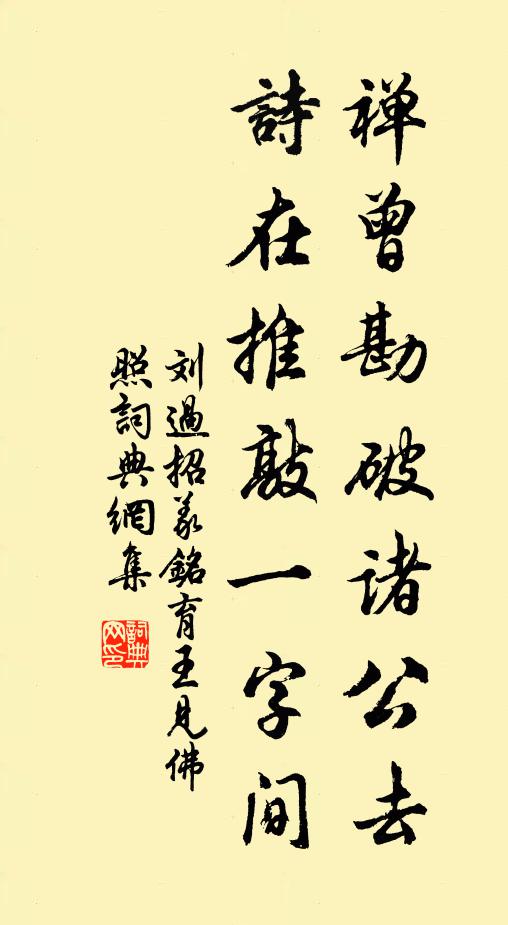 禅曾勘破诸公去
詩在推敲一字间
刘過招義銘育王見佛
照詞典網集
詞典網印